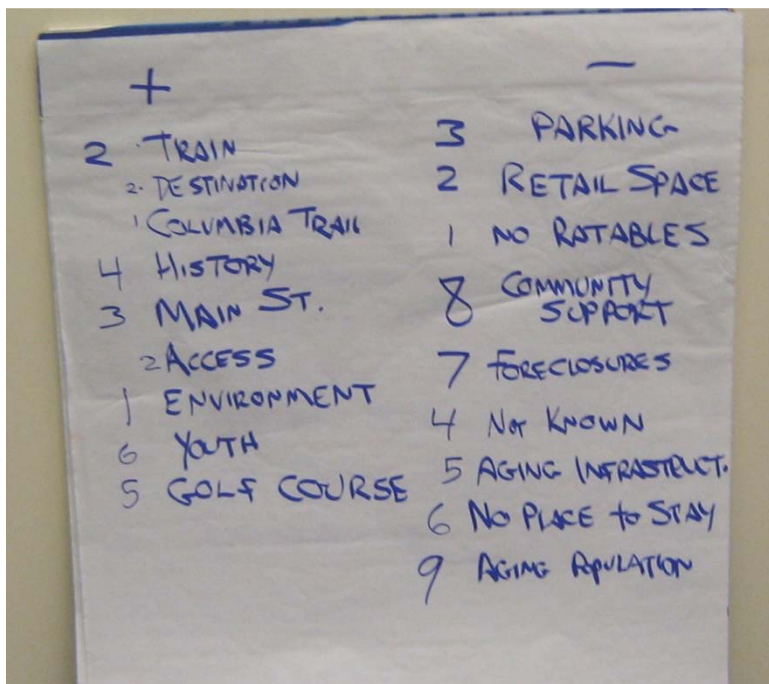 +
2 TRAIN
2. DESTINATION
1 COLUMBIA TRAIL
4 HISTORY
3 MAIN ST.
2 ACCESS
1 ENVIRONMENT
6 YOUTH
5 GOLF COURSE
−
3 PARKING
2 RETAIL SPACE
1 NO RATABLES
8 COMMUNITY
SUPPORT
7 FORECLOSURES
4 NOT KNOWN
5 AGING INFRASTRUCT.
6 NO PLACE to STAY
9 AGING POPULATION